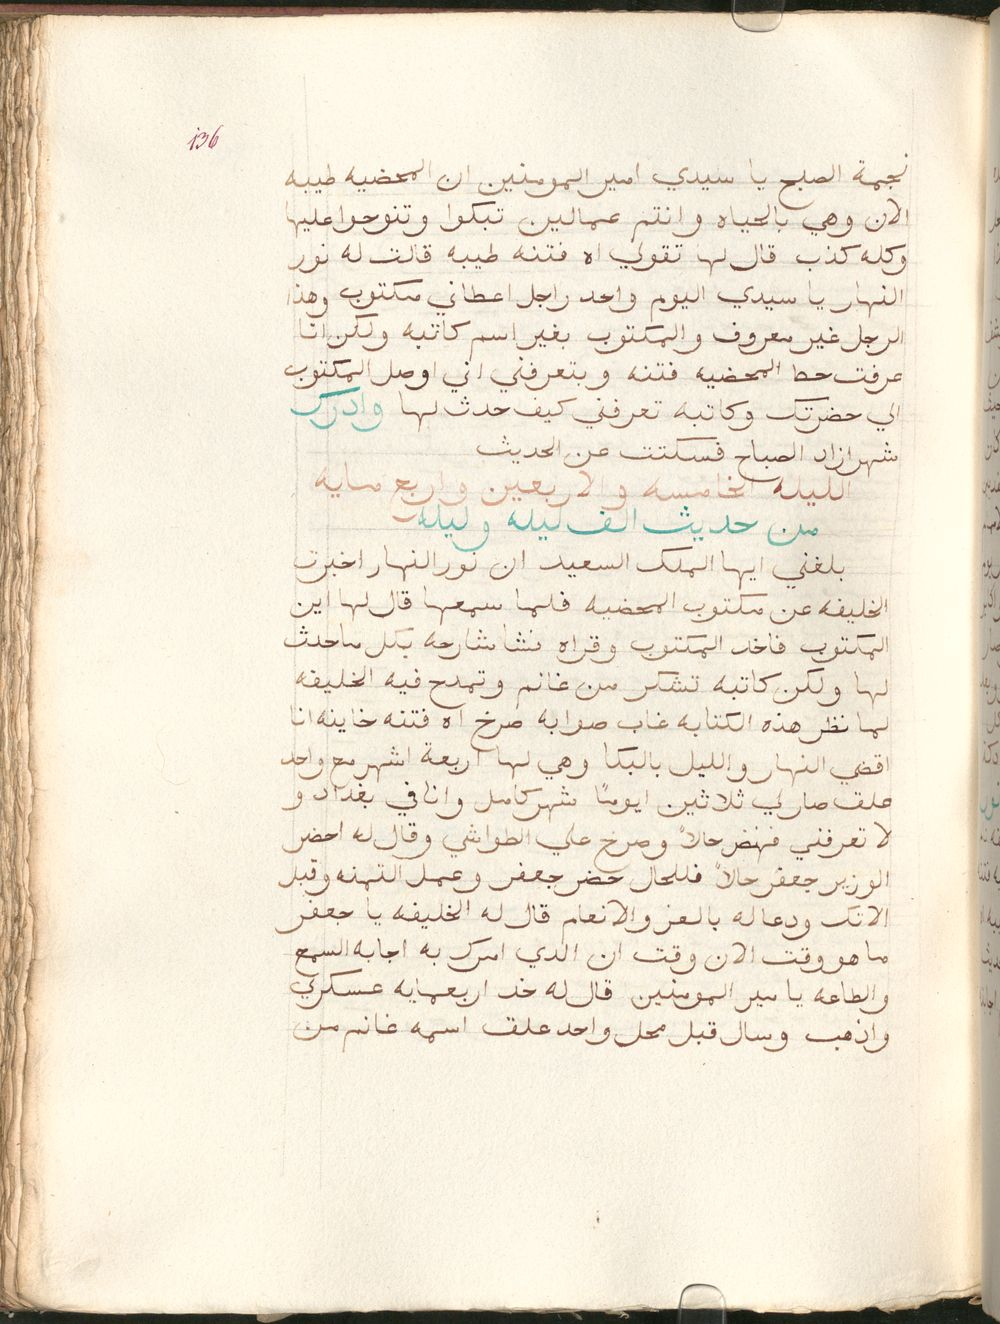 136
نجمة الصلح يا سيدي امير المومنين ان المحضيه طيبه
الان وهي بالحياه وانتم عمالين تبكوا وتنوحوا عليها
وكله كذب قال لها تقولي اه فتنه طيبه قالت له نور
النهار يا سيدي اليوم واحد راجل اعطاني مكتوب وهذا
الرجل غير معروف والمكتوب بغير اسم كاتبه ولكن انا
عرفت خط المحضيه فتنه وبتعرفني اني اوصل المكتوب
الي حضرتك وكاتبه تعرفني كيف حدث لها وادرك
شهرازاد الصباح فسكتت عن الحديث
الليله الخامسه والاربعين واربع مايه
من حديث الف ليله وليله
بلغني ايها الملك السعيد ان نور النهار اخبرت
الخليفه عن مكتوب المحضيه فلما سمعها قال لها اين
المكتوب فاخد المكتوب وقراه شارحه بكل ما حدث
لها ولكن كاتبه تشكر من غانم وتمدح فيه الخليفه
لما نظر هذه الكتابه غاب صوابه صرخ اه فتنه خاينه انا
اقضي النهار والليل بالبكا وهي لها اربعة اشهر مع واحد
علق صار لي ثلاثين ايوما شهر كامل وانا في بغداد و
لا تعرفني فنهض حالاً وصرخ علي الطواشي وقال له احضر
الوزير جعفر حالاً فللحال حضر جعفر وعمل التمنه وقبل
الاتك ودعا له بالعز والانعام قال له الخليفه يا جعفر
ما هو وقت الان وقت ان الدي امرك به اجابه السمع
والطاعه يا مير المومنين قال له خد اربعمايه عسكري
واذهب وسال قبل محل واحد علق اسمه غانم من